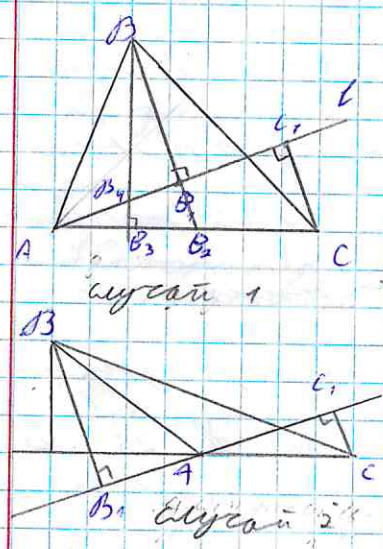 B
l
C₁
B₄
B₁
A
B₃
B₂
C
случай 1
B
C₁
A
C
B₁
случай 2